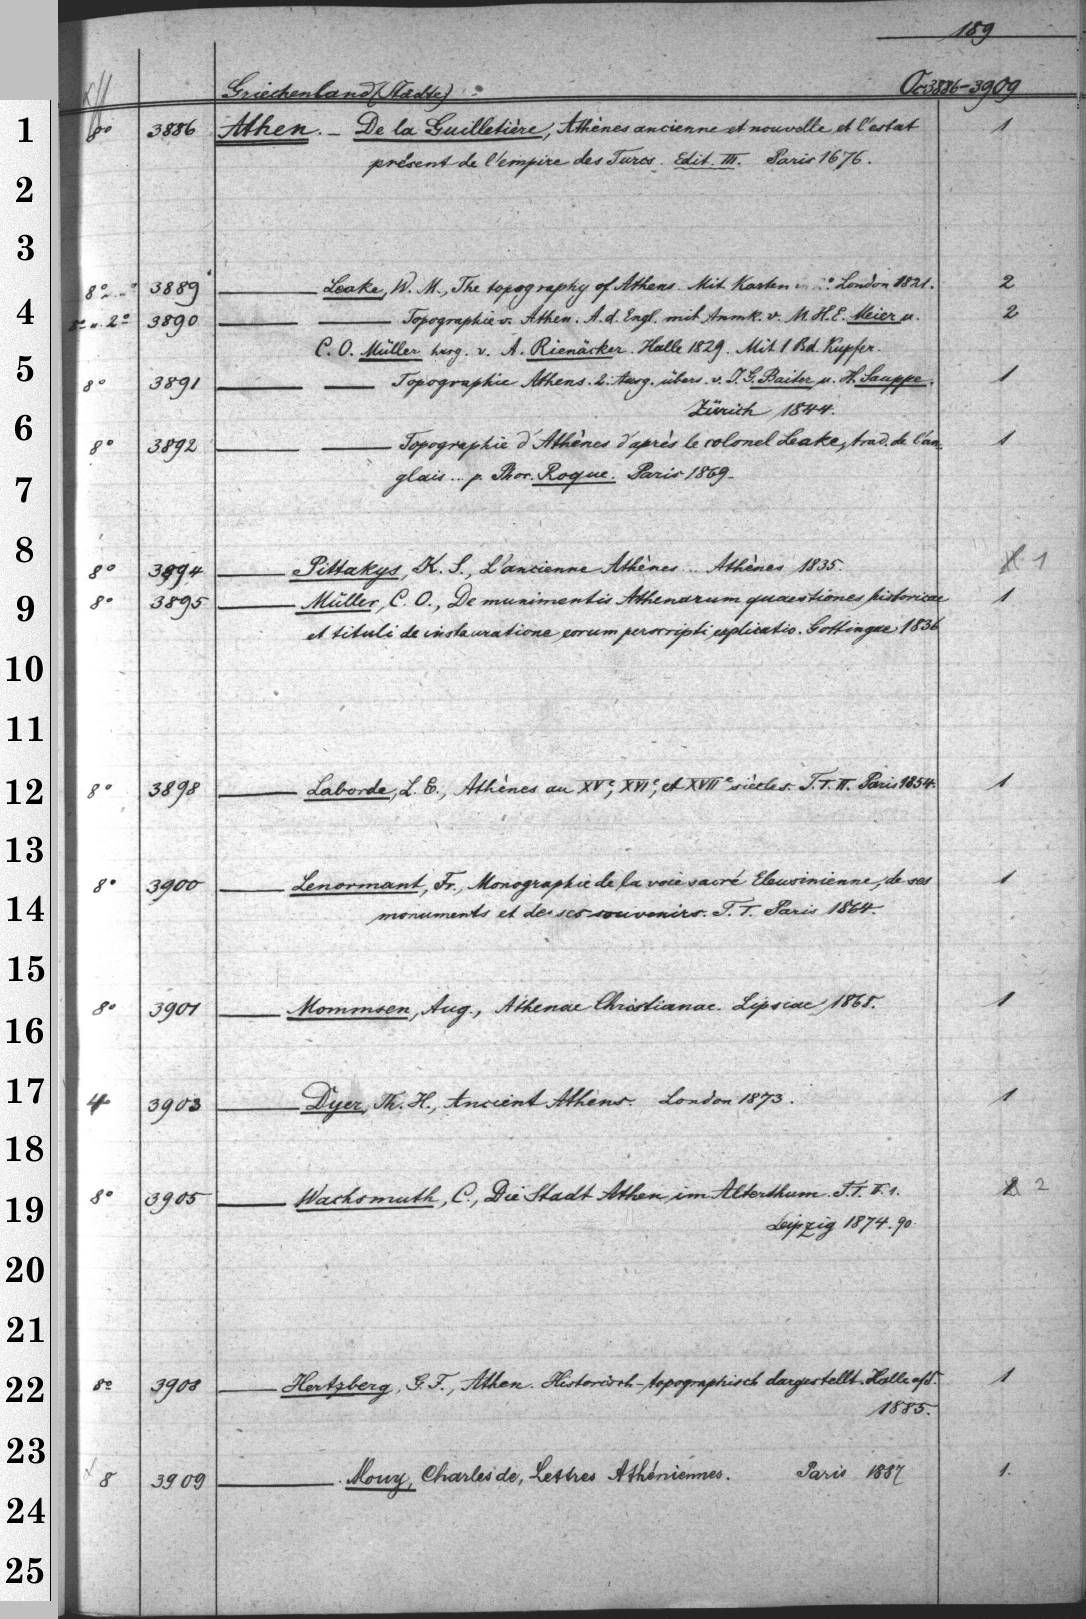 189
Griechenland (Städte) Oc 3886-3909
1 8° 3886 Athen. — De la Guilletière, Athènes ancienne et nouvelle et l'estat 1
présent de l'empire des Turcs. Edit. III. Paris 1676.
2
3
8° 3889 Leake, W. M., The topography of Athens. Mit Karten London 1821. 2
4 8° u. 2° 3890 Topographie v. Athen. A. d. Engl. mit Anmk. v. M. H. E. Meier u. 2
C. O. Müller hrsg. v. A. Rienäcker. Halle 1829. Mit 1 Bd. Kupfer.
5 8° 3891 Topographie Athens. 2. Ausg. übers. v. J. G. Baiter u. H. Sauppe. 1
Zürich 1844.
6 8° 3892 Topographie d'Athènes d'après le colonel Leake, trad. de l'an-
1
7 glais ... p. Phoc. Roque. Paris 1869.
8 8° 3894 Pittakys, K. S., L'ancienne Athènes ... Athènes 1835. 1
9 8° 3895 Müller, C. O., De munimentis Athenarum quaestiones historicae 1
et tituli de instauratione eorum perscripti explicatio. Gottingae 1836
10
11
12 8° 3898 Laborde, L. E., Athènes au XVe, XVIe, et XVIIe siècles. T. I. II. Paris 1854. 1
13
8° 3900 Lenormant, Fr., Monographie de la voie sacré Eleusinienne, de ses 1
14 monuments et de ses souvenirs. T. I. Paris 1864.
15
8° 3901 Mommsen, Aug., Athenae Christianae. Lipsiae 1868. 1
16
17 4 3903 Dyer, Th. H., Ancient Athens. London 1873. 1
18
19 8° 3905 Wachsmuth, C., Die Stadt Athen im Alterthum. T. I. II. 1. 2
Leipzig 1874. 90.
20
21
22 8° 3908 Hertzberg, G. F., Athen. Historisch-topographisch dargestellt. Halle a/S. 1
1885.
23
8 3909 Mouy, Charles de, Lettres Athéniennes. Paris 1887 1.
24
25